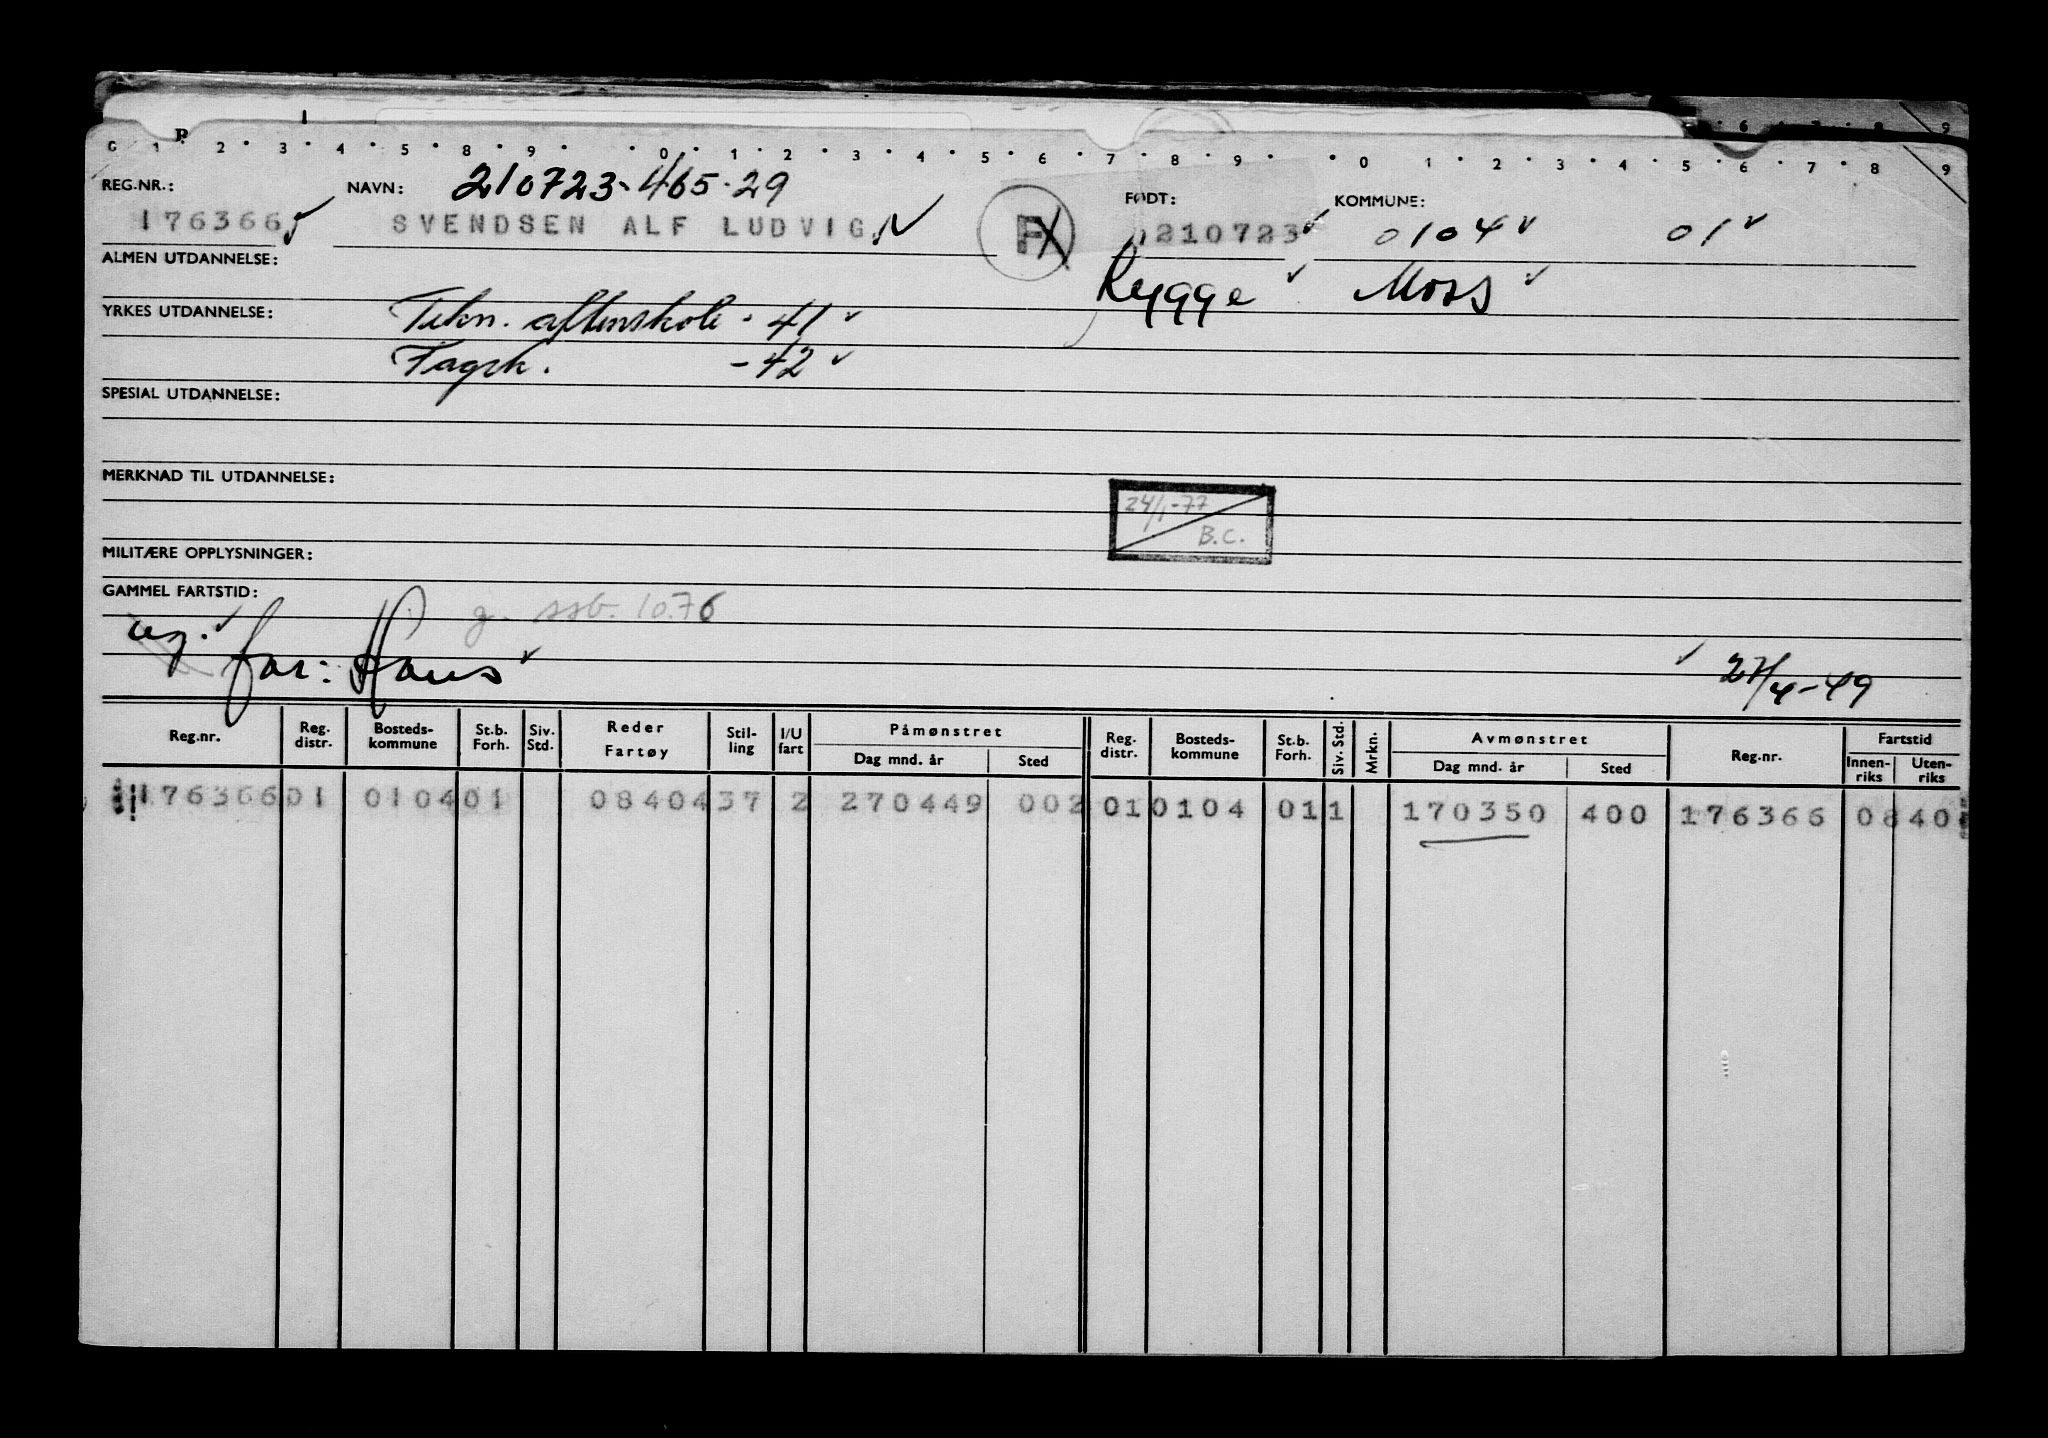 R
0 1 2 3 4 5 8 9 0 1 2 3 4 5 6 7 8 9 0 1 2 3 4 5 6 7 8 9
210723-465-29
REG.NR.: NAVN: FØDT: KOMMUNE:
176366 SVENDSEN ALF LUDVIG N F 210723 0104 01
ALMEN UTDANNELSE: Rygge Moss
YRKES UTDANNELSE: Tekn. aftenskole - 41
Fagsk. - 42
SPESIAL UTDANNELSE:
MERKNAD TIL UTDANNELSE:
24/1-77
B.C.
MILITÆRE OPPLYSNINGER:
GAMMEL FARTSTID:
g. ssb. 10.76
ug. far: Hans 27/4-49
Reg.nr. Reg. distr. Bosteds-kommune St.b. Forh. Siv. Std. Reder Fartøy Stil-ling I/U fart Påmønstret Dag mnd. år Sted Reg. distr. Bosteds-kommune St.b. Forh. Siv. Std. Mrkn. Avmønstret Dag mnd. år Sted Reg.nr. Fartstid Innen-riks Uten-riks
176366 01 0104 01 08404 37 2 270449 002 01 0104 01 1 170350 400 176366 08 40